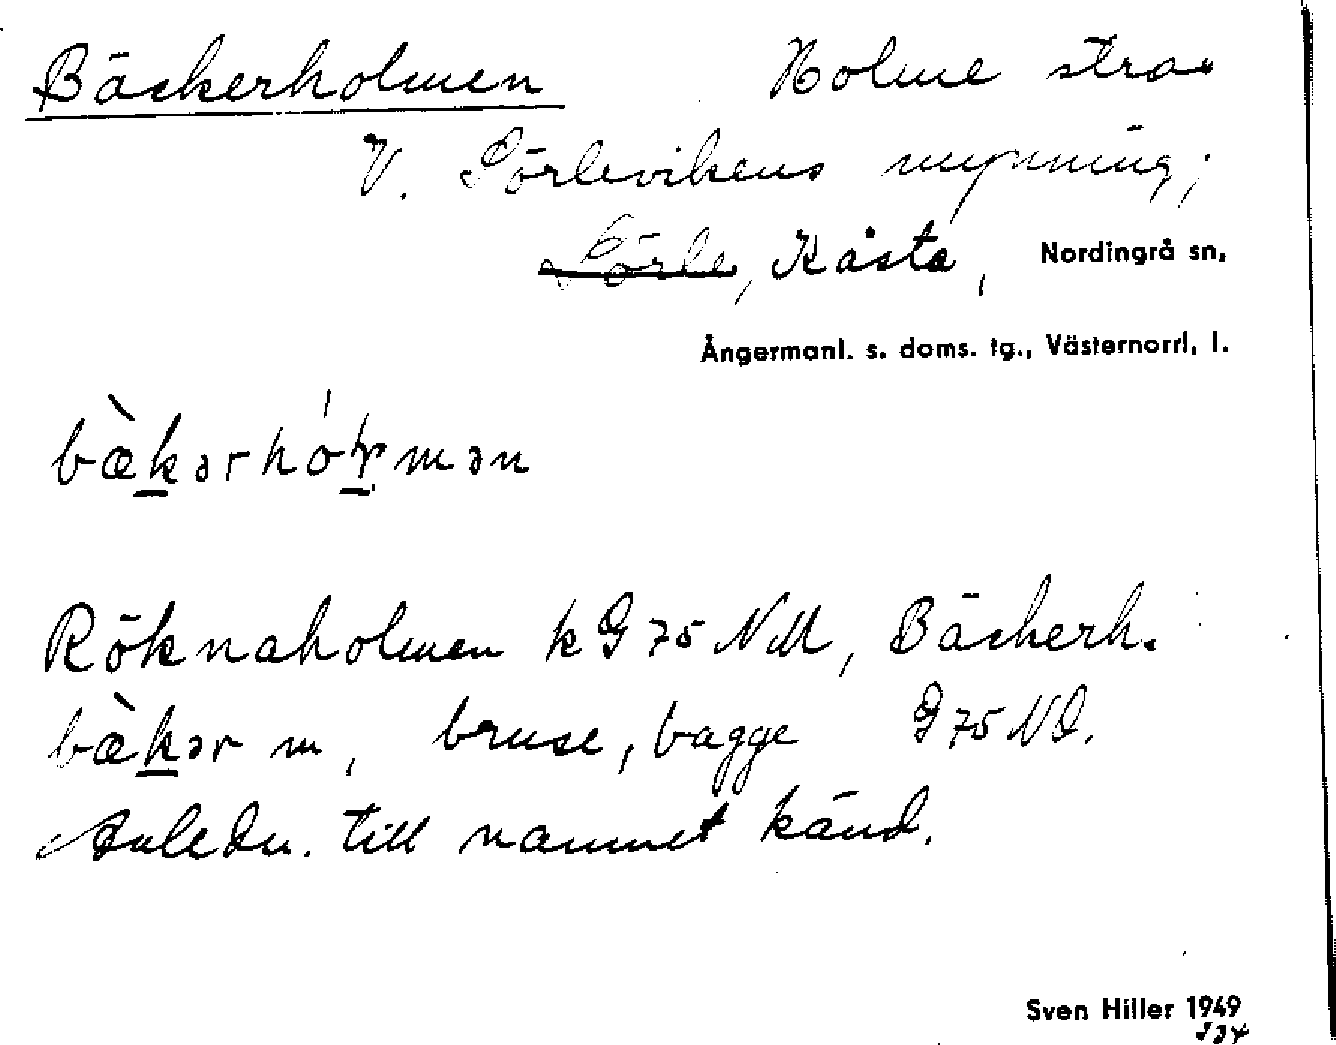 Bäckerholmen Holme strax
V. Sörlevikens mynning;
Sörle, Kåsta, Nordingrå sn,
Ångermanl. s. doms. tg., Västernorrl. l.
bæ̀kərhó
Röknaholmen k G 75 NM, Bäckerh.
bæ̀kər m, bruse, bagge G 75 NS.
Anledn. till namnet känd.
Sven Hiller 1949